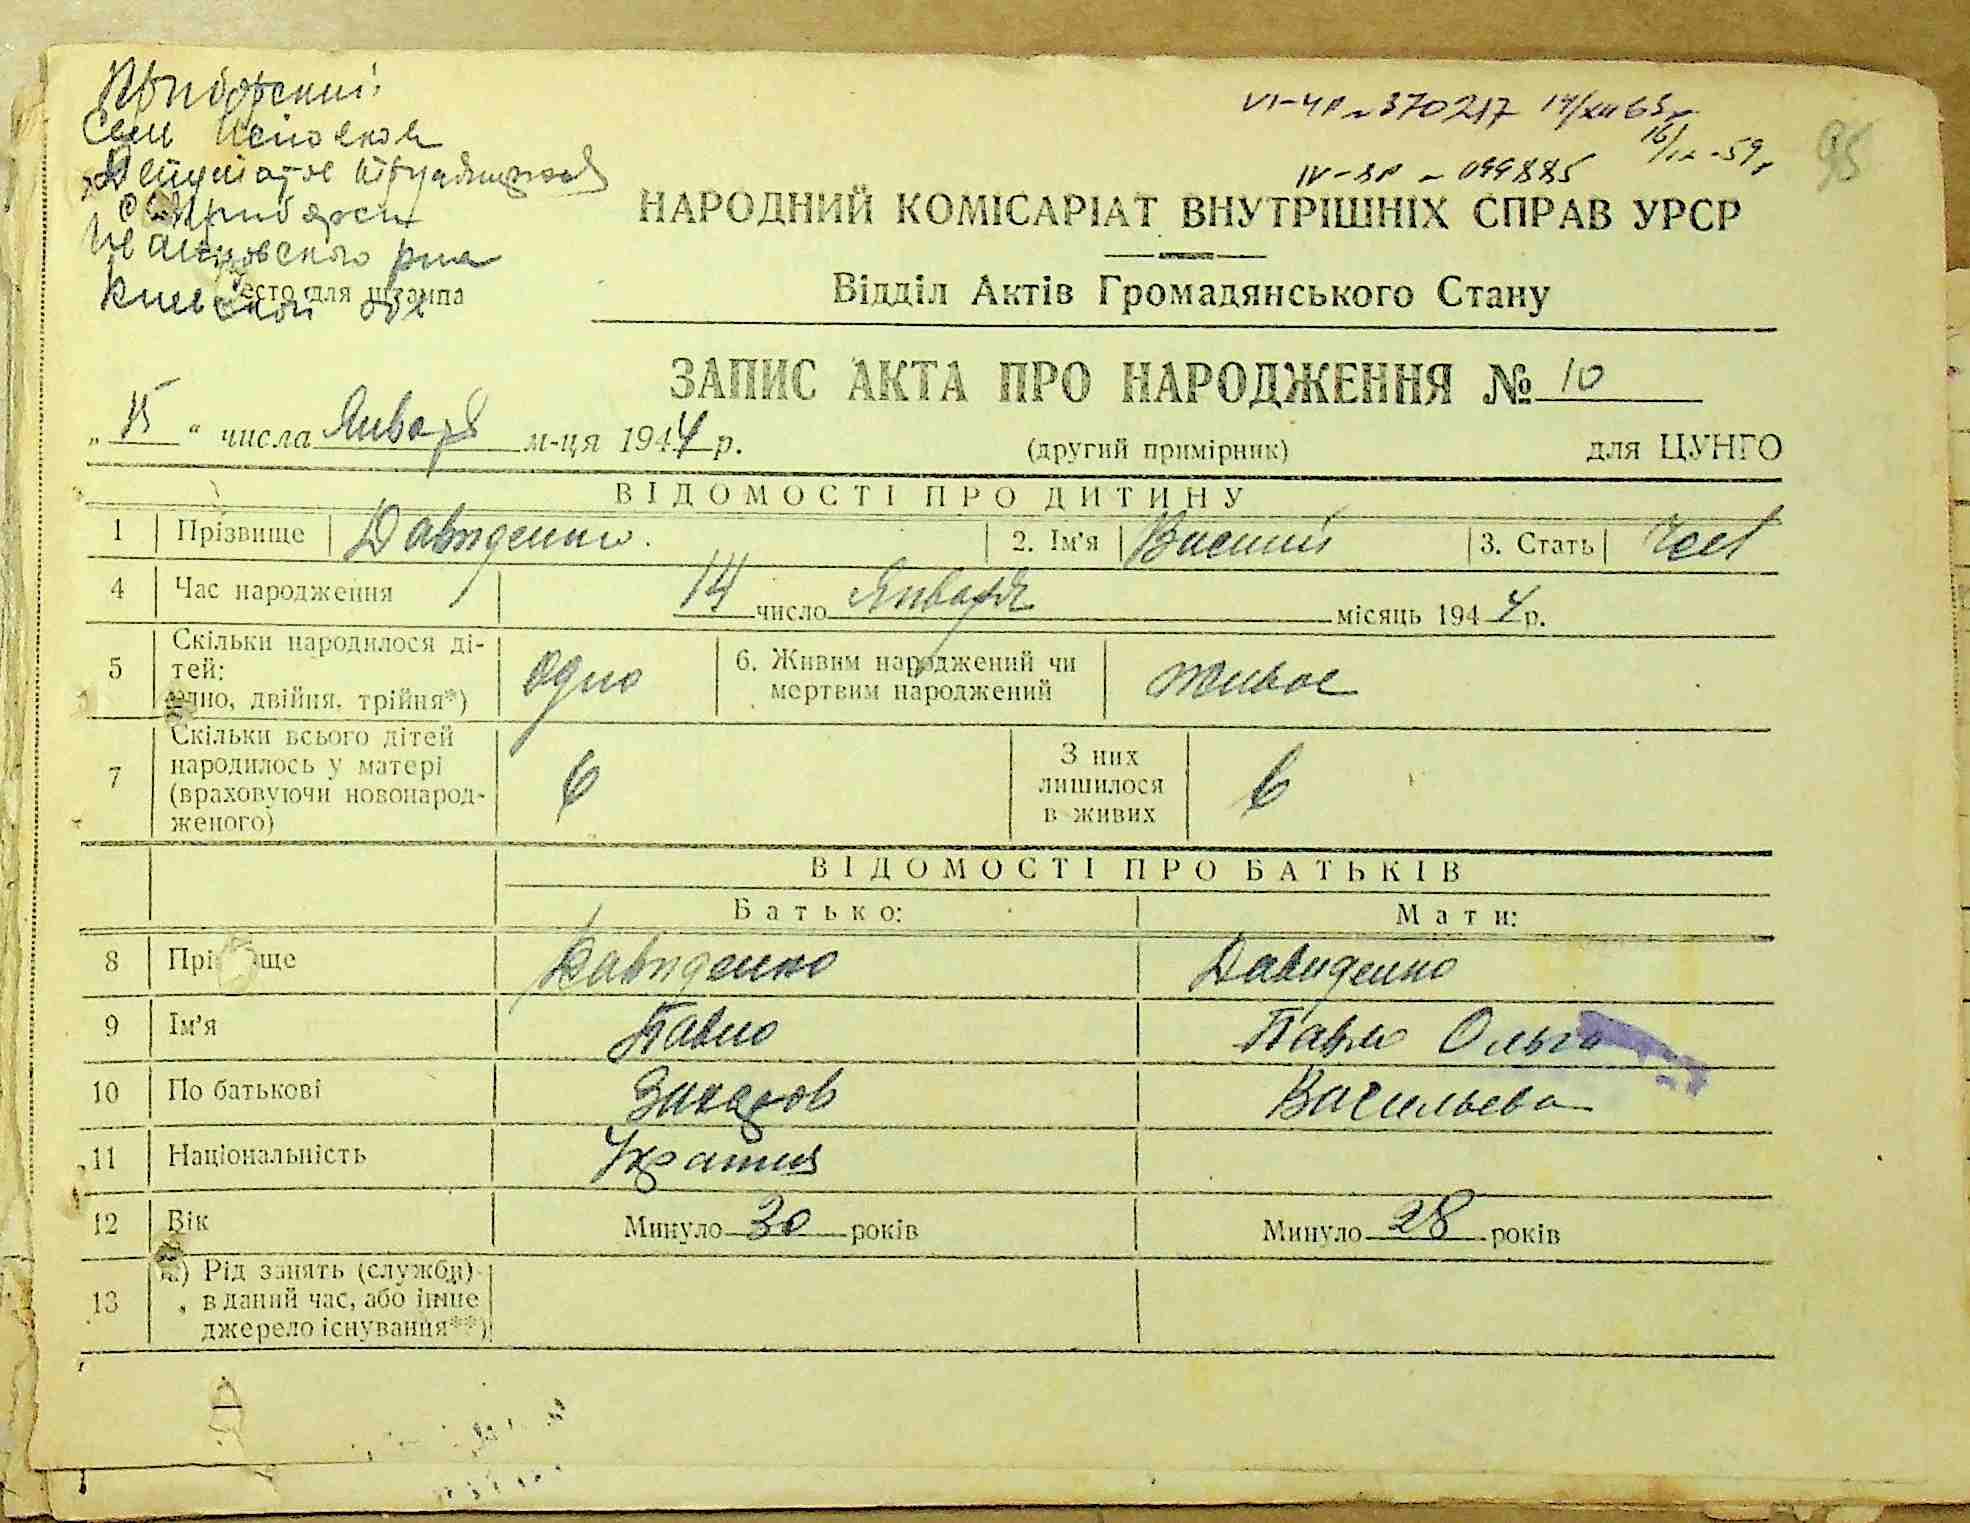 Приборский
Сель Исполком
Депутатов трудящихся
с Приборск
Ивановского р-на
Киевской обл
Место для штампа
VI-ЧР № 370217 14/XII 63 г
16/IX-59 г
IV-ЯР № 099885
95
НАРОДНИЙ КОМІСАРІАТ ВНУТРІШНІХ СПРАВ УРСР
Відділ Актів Громадянського Стану
ЗАПИС АКТА ПРО НАРОДЖЕННЯ № 10
„15“ числа Января м-ця 1944 р.
(другий примірник) для ЦУНГО
ВІДОМОСТІ ПРО ДИТИНУ
1 Прізвище Давиденко. 2. Ім'я Василий 3. Стать
4 Час народження 14 число Января місяць 1944 р.
5 Скільки народилося дітей: одно, двійня, трійня*) одно 6. Живим народжений чи мертвим народжений живое
7 Скільки всього дітей народилось у матері (враховуючи новонародженого) 6 З них лишилося в живих 6
ВІДОМОСТІ ПРО БАТЬКІВ
Батько: Мати:
8 Прізвище Давиденко Давиденко
9 Ім'я Павло Ольга
10 По батькові Захаров Васильева
11 Національність
12 Вік Минуло 30 років Минуло 28 років
13 а) Рід занять (служби) в даний час, або інше джерело існування**)